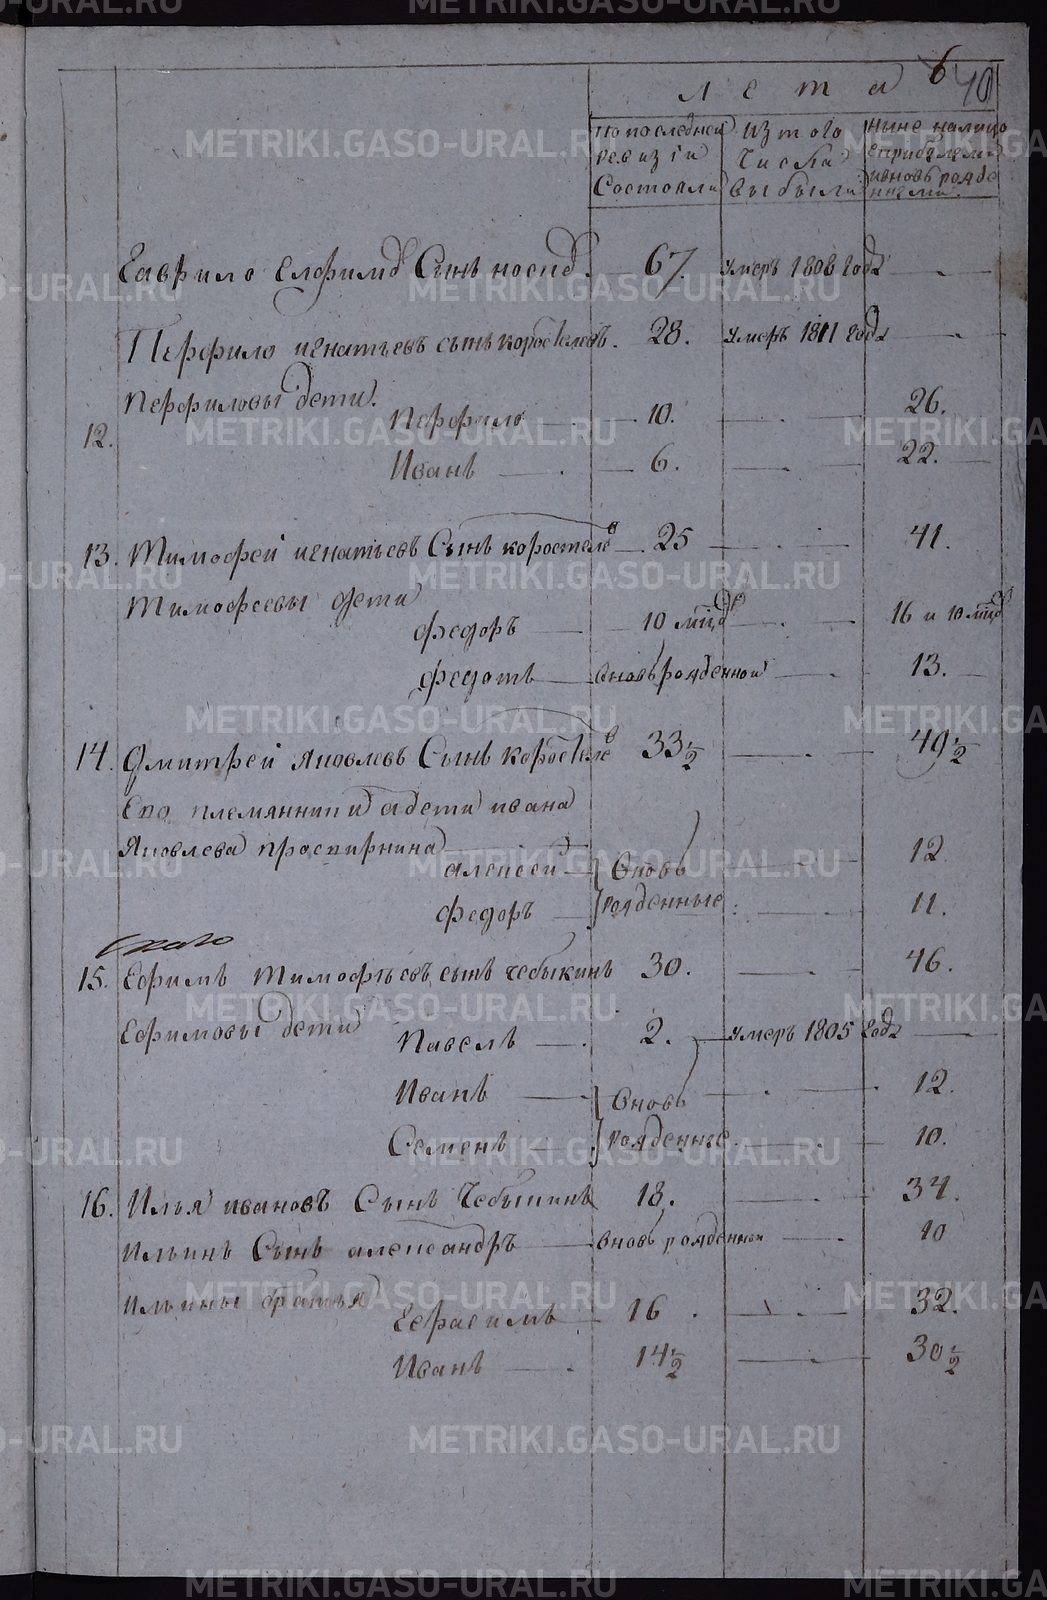 6
40
лета
по последней ревизiи состояли
из того числа выбыли
ныне налицо с прибылыми и вновь рожденными
Гаврило Елфимов Сынъ носов. — 67 умеръ 1808 года —
Перфило игнатьевъ сынъ коростелевъ. 28. умеръ 1811 года —
Перфиловы дети.
12. Перфило — 10. — 26.
Иванъ — 6. — 22.
13. Тимофей игнатьевъ Сынъ коростелев — 25 — 41.
Тимофеевы дети
федоръ — 10 мцов — 16 и 10 мцов
федотъ — вновь рожденной — 13.
14. Дмитрей яковлевъ Сынъ коростелев 33 1/2 — 49 1/2
Его племянники а дети ивана
Яковлева просвирнина
алексей — Вновь — 12
Федоръ — рожденные — 11.
15. Ефимъ Тимофѣевъ сынъ чебыкинъ 30. — 46.
Ефимовы дети
Павелъ — 2. — умеръ 1805 года —
Иванъ — Вновь — 12.
Семенъ — рожденные — 10.
16. Илья ивановъ Сынъ Чебыкинъ 18. — 34.
Ильинъ Сынъ александръ — вновь рожденной — 10
Ильины братья
Герасимъ — 16 — 32.
Иванъ — 14 1/2 — 30 1/2
METRIKI.GASO-URAL.RU